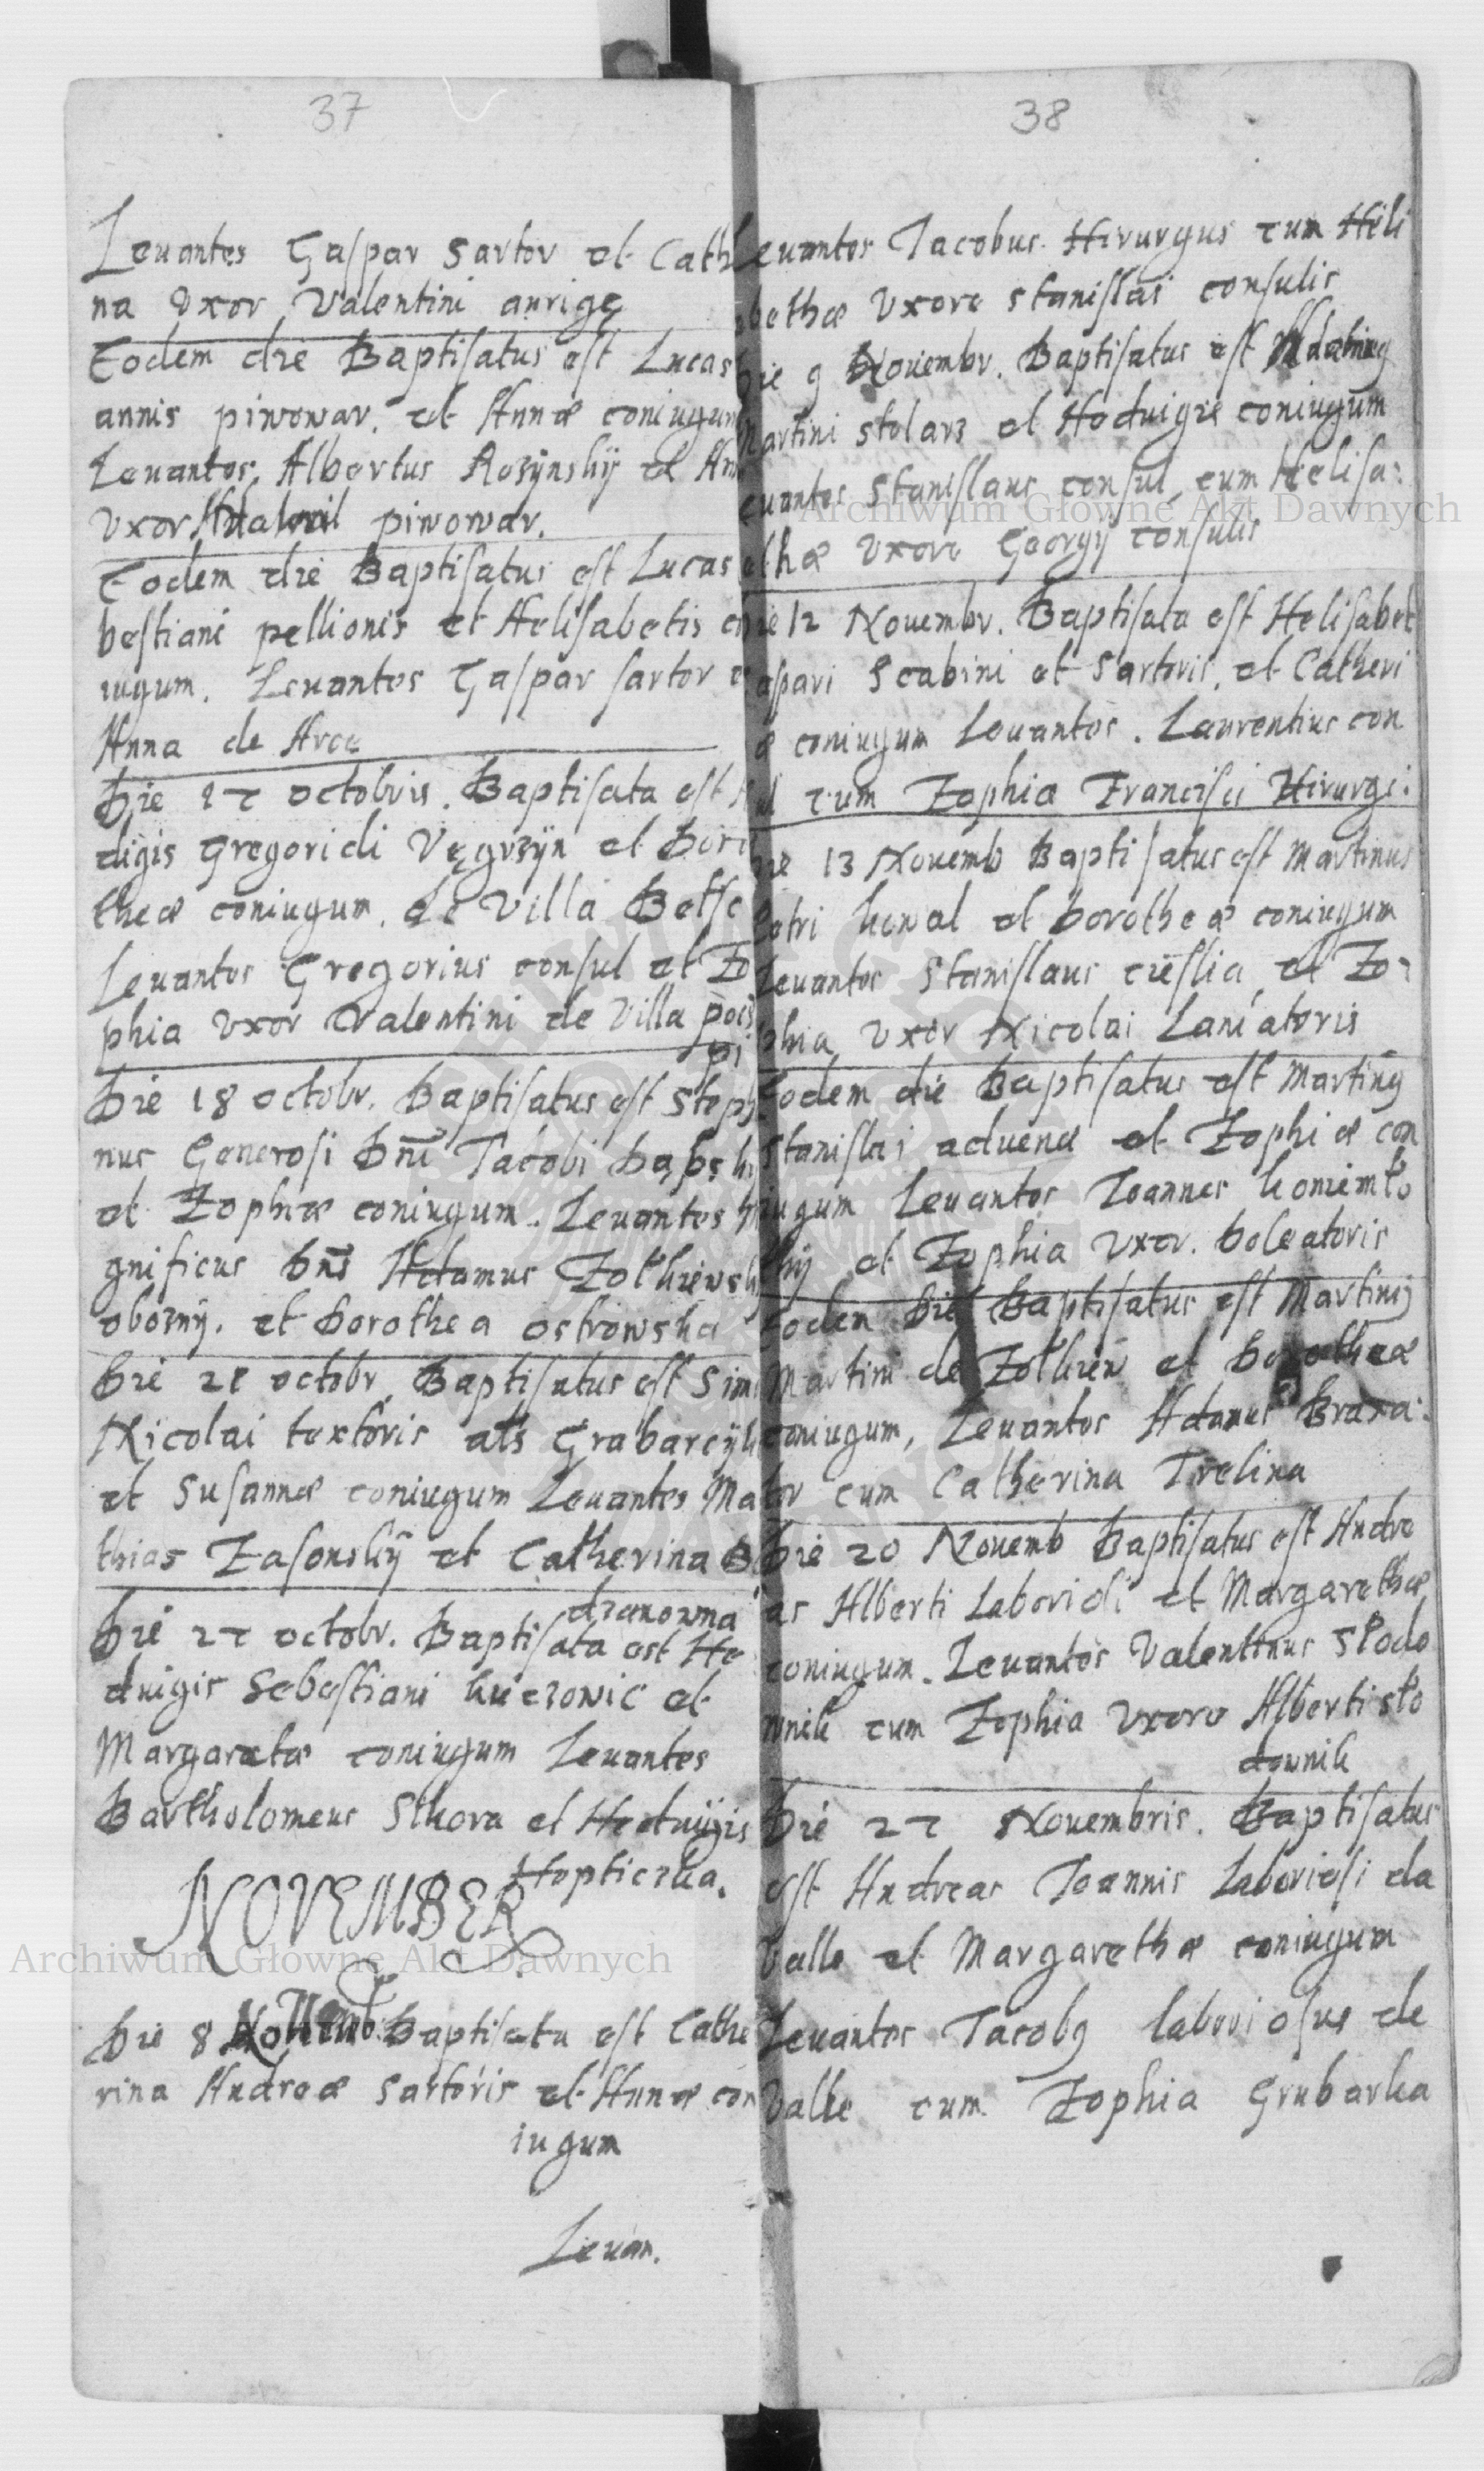 37
Leuantes Gaspar Sartor et Cath
na Uxor Valentini aurigę
Eodem die Baptisatus est Lucas
annis piwowar. et Annæ coniugum
Leuantes, Albertus Rozynskÿ et An
Vxor piwowar.
Eodem die Baptisatus est Lucas
bestiani pellionis et Helisabetis co
iugum. Leuantes Gaspar sartor e
Anna de Arce
Die 17 octobris. Baptisata est H
digis Gregoridi Vęgrzÿn et Doro
theæ coniugum. de Villa Betſe
Leuantes Gregorius consul et Zo
phia vxor Valentini de Villa poci
pi
Die 18 octobr. Baptisatus est Steph
nus Generosi Dnī Jacobi
et Zophiæ coniugum. Leuantes M
gnificus Dns Adamus Zolkiewsk
obozny. et Dorothea ostrowska
Die 28 octobr. Baptisatus est Sim
Nicolai textoris als Grabarcÿk
et Susannæ coniugum Leuantes Ma
thias Zasonskÿ et Catherina B
dzanowna
Die 27 octobr. Baptisata est He
duigis Sebestiani et
Margaretæ coniugum Leuantes
Bartholomeus Sikora et Heduigis
Hopticzka.
NOVEMBER
Die 8 Nouemb. Baptisata est Cathe
rina Andreæ Sartoris et Annæ con
iugum
Leuan.
38
Leuantes Jacobus Hirurgus cum Heli
bethæ Vxore stanislai consulis
Die 9 Nouembr. Baptisatus est
Martini stolarz et Heduigis coniugum
euantes Stanislaus consul, cum Helisa:
ethæ vxore Georgÿ consulis
Die 12 Nouembr. Baptisata est Helisabet
aspari Scabini et Sartoris, et Catheri
æ coniugum Leuantes. Laurentius con
ul cum Zophia Francisci Hirurgi.
Die 13 Nouemb Baptisatus est Martinus
Petri kowal et Dorotheæ coniugum
Leuantes Stanislaus cieslia, et Zo-
phia vxor Nicolai Laniatoris
Eodem die Baptisatus est Martinꝰ
Stanislai aduenæ et Zophiæ con
iugum Leuantes Ioannes koniemło
kÿ et Zophia Vxor. Doleatoris
Eodem Die Baptisatus est Martinꝰ
Martini de Zolkiew et Dorotheæ
coniugum, Leuantes Adamus Braxa:
tor cum Catherina Trelina
Die 20 Nouemb Baptisatus est Andre
as Alberti Laboridi et Margarethæ
coniugum. Leuantes Valentinus Stodo
wnik cum Zophia vxore Alberti sto
downik
Die 27 Nouembris. Baptisatus
est Andreas Ioannis Laboriosi da
Valle et Margarethæ coniugum
Leuantes Jacobꝰ laboriosus de
Valle cum Zophia Grubarka
Archiwum Główne Akt Dawnych
Archiwum Główne Akt Dawnych